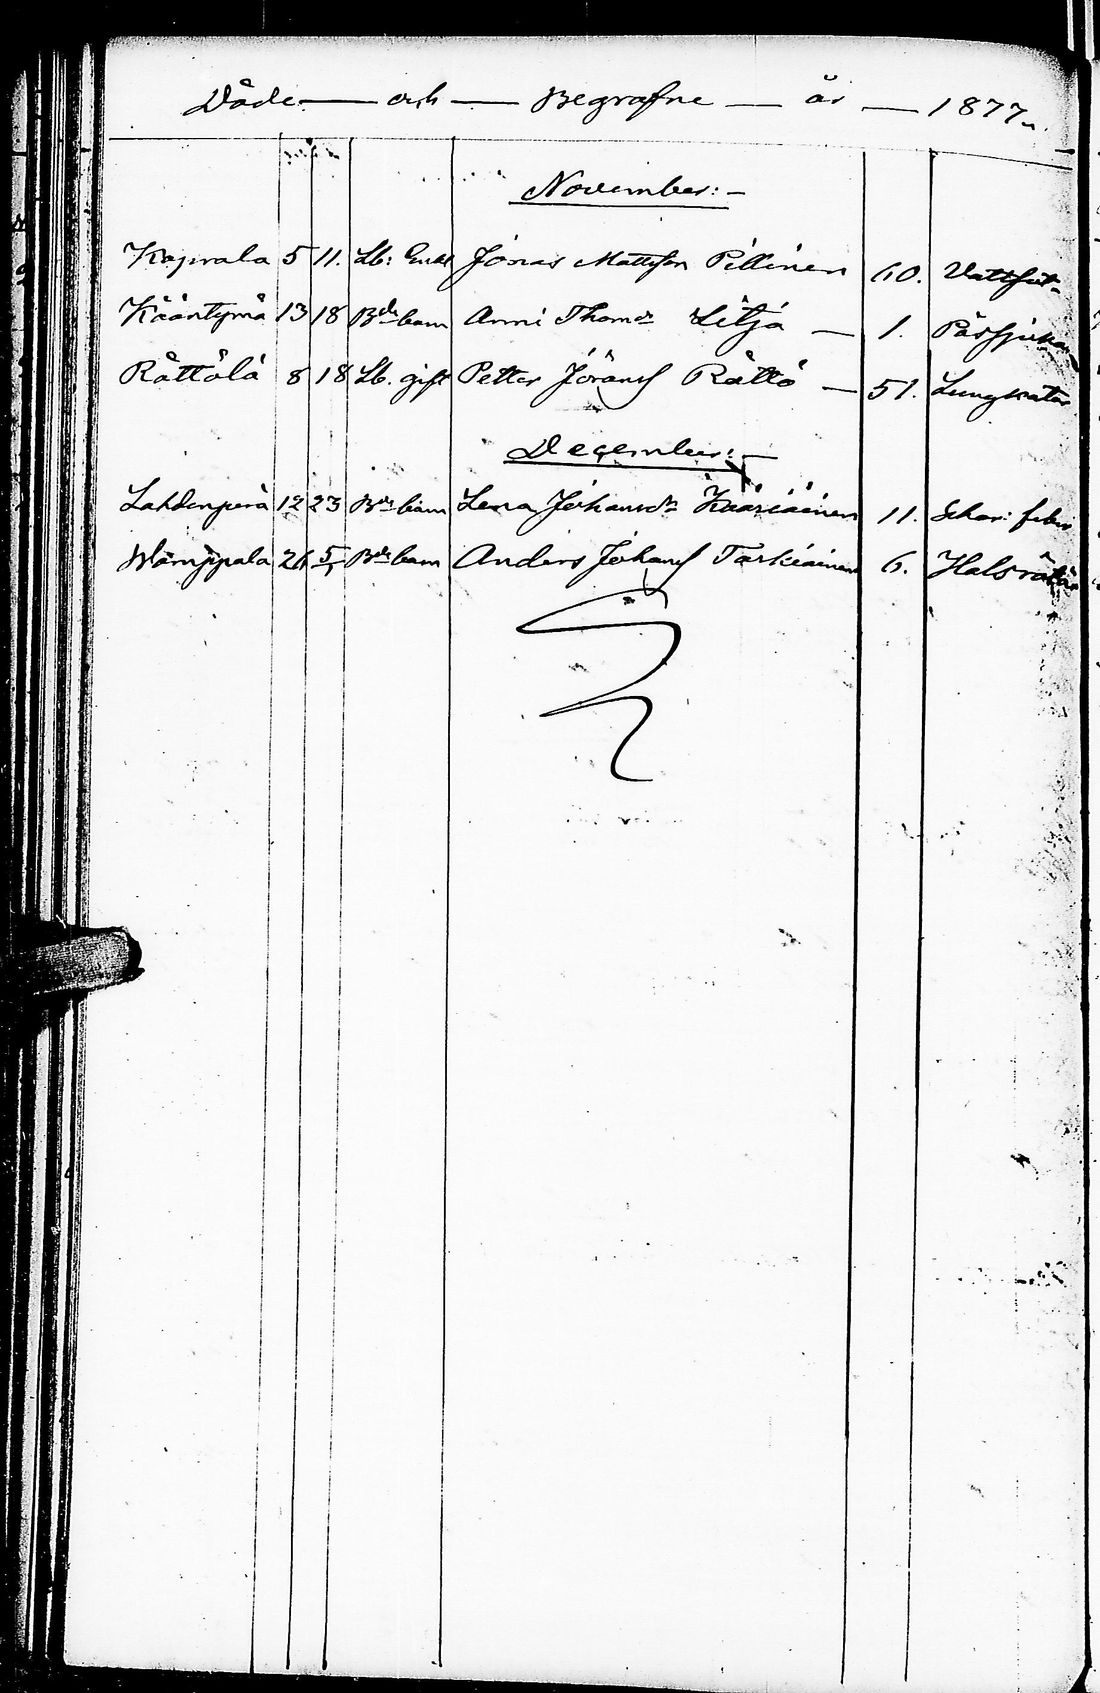 Döde — och — Begrafne — år — 1877.
November:-
Kaprala 5 11. Lb: Enkl Jonas Mattsson Pillinen 60. Vattsot
Kääntymä 13 18 Bde barn Anni Thomdr Litja — 1. Påssjukan
Rättölä 8 18 Lb. gift Petter Göranss Rättö — 51. Lungkatar
December:-
Lahdenperä 12 23 Bde barn Lena Johansdr Kääriäinen 11. Schar: feber
5/1 Bde barn Anders Johanss Tarkiainen 6. Halsröta